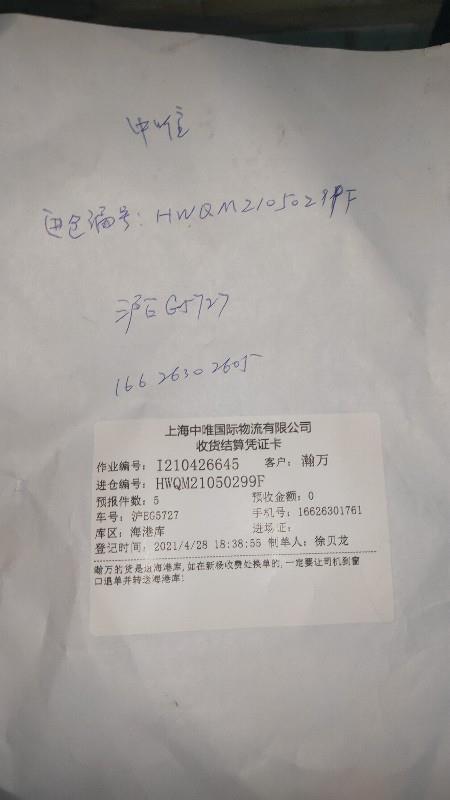 中唯
进仓编号: HWQM21050299F
沪EG5727
16626302605
上海中唯国际物流有限公司
收货结算凭证卡
作业编号: I210426645 客户: 瀚万
进仓编号: HWQM21050299F
预报件数: 5 预收金额: 0
车号: 沪EG5727 手机号: 16626301761
库区: 海港库 进场证:
登记时间: 2021/4/28 18:38:55 制单人: 徐贝龙
瀚万的货是进海港库,如在新杨收费处换单的,一定要让司机到窗
口退单并转送海港库!